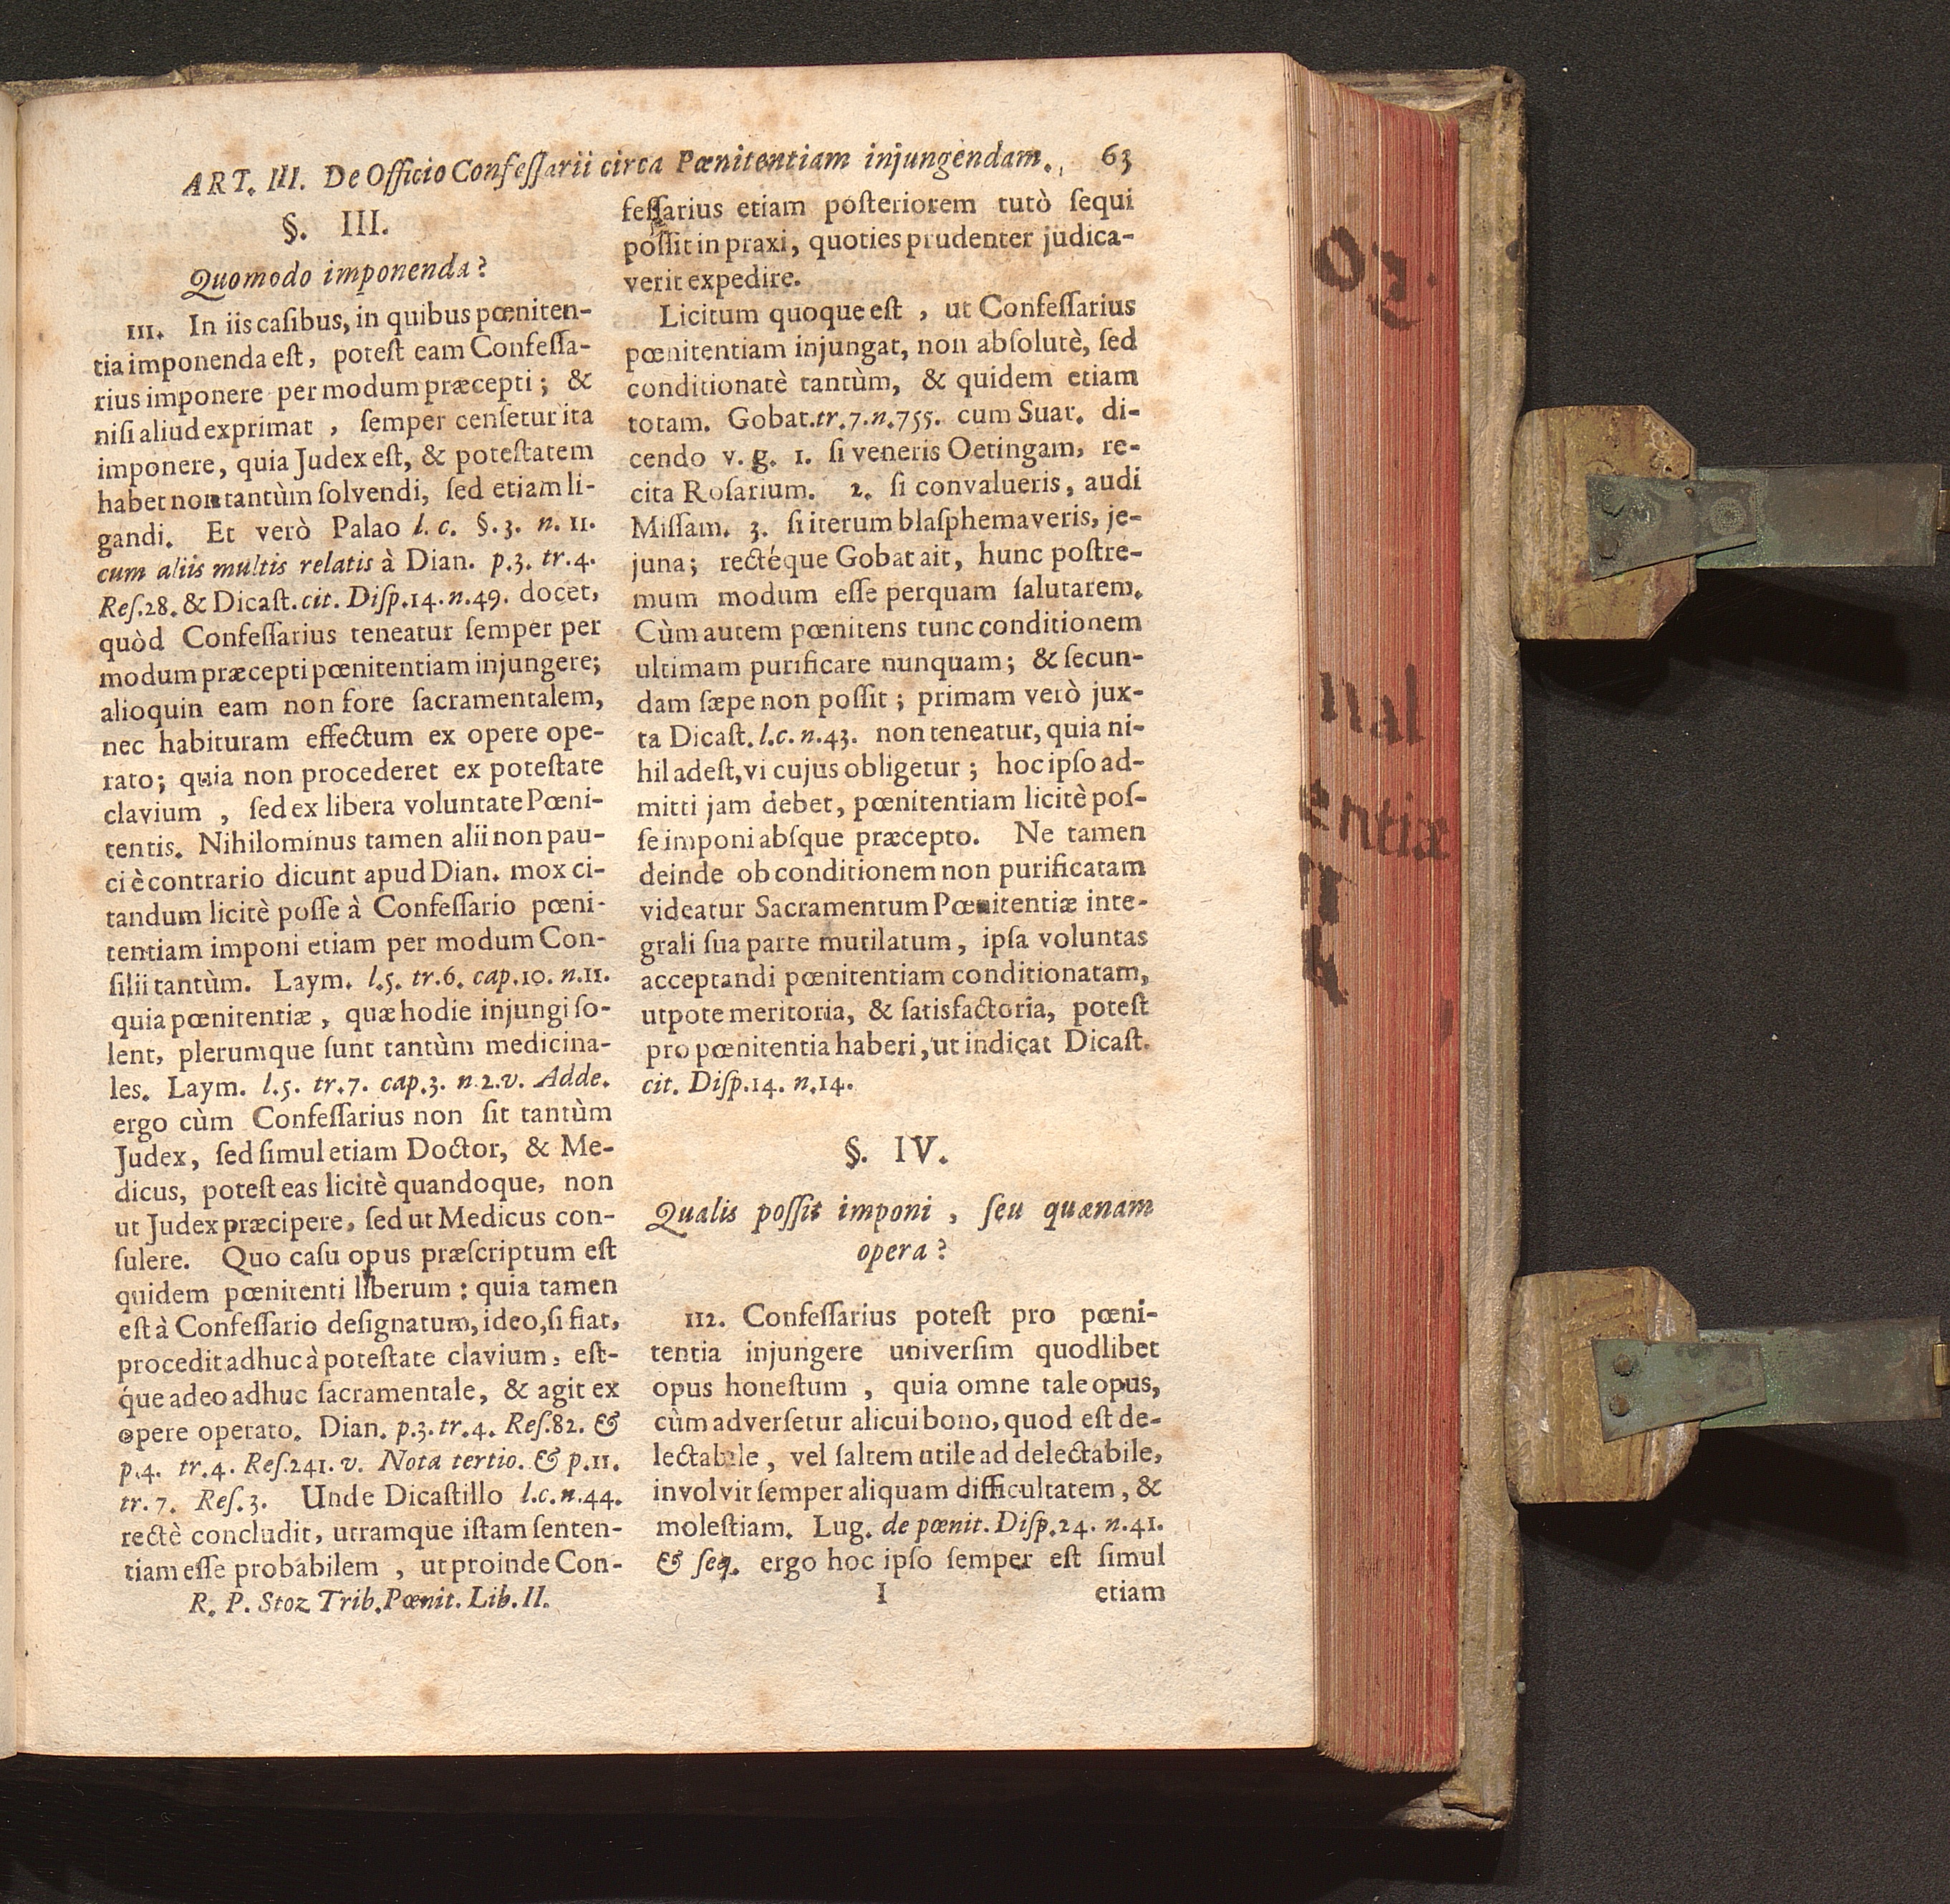 ART. III. De Officio Confeſſarii circa Pœnitentiam injungendam. 63
§. III.
Quomodo imponenda?
111. In iis caſibus, in quibus pœniten-
tia imponenda eſt, poteſt eam Confeſſa-
rius imponere per modum præcepti; &
niſi aliud exprimat, ſemper cenſetur ita
imponere, quia Judex eſt, & poteſtatem
habet non tantùm ſolvendi, ſed etiam li-
gandi. Et verò Palao l. c. §. 3. n. 11.
cum aliis multis relatis à Dian. p.3. tr.4.
Reſ.28. & Dicaſt. cit. Diſp.14.n.49. docet,
quòd Confeſſarius teneatur ſemper per
modum præcepti pœnitentiam injungere;
alioquin eam non fore ſacramentalem,
nec habituram effectum ex opere ope-
rato; quia non procederet ex poteſtate
clavium, ſed ex libera voluntate Pœni-
tentis. Nihilominus tamen alii non pau-
ci è contrario dicunt apud Dian. mox ci-
tandum licitè poſſe à Confeſſario pœni-
tentiam imponi etiam per modum Con-
ſilii tantùm. Laym. l.5. tr.6. cap.10. n.11.
quia pœnitentiæ, quæ hodie injungi ſo-
lent, plerumque ſunt tantùm medicina-
les. Laym. l.5. tr.7. cap.3. n.2.v. Adde.
ergo cùm Confeſſarius non ſit tantùm
Judex, ſed ſimul etiam Doctor, & Me-
dicus, poteſt eas licitè quandoque, non
ut Judex præcipere, ſed ut Medicus con-
ſulere. Quo caſu opus præſcriptum eſt
quidem pœnitenti liberum: quia tamen
eſt à Confeſſario deſignatum, ideo, ſi fiat,
procedit adhuc à poteſtate clavium, eſt-
que adeo adhuc ſacramentale, & agit ex
opere operato. Dian. p.3. tr.4. Reſ.82. &
p.4. tr.4. Reſ.241. v. Nota tertio. & p.11.
tr.7. Reſ.3. Unde Dicaſtillo l.c.n.44.
rectè concludit, utramque iſtam ſenten-
tiam eſſe probabilem, ut proinde Con-
R. P. Stoz Trib. Pœnit. Lib. II.
feſſarius etiam poſteriorem tutò ſequi
poſſit in praxi, quoties prudenter judica-
verit expedire.
Licitum quoque eſt, ut Confeſſarius
pœnitentiam injungat, non abſolutè, ſed
conditionatè tantùm, & quidem etiam
totam. Gobat.tr.7.n.755. cum Suar. di-
cendo v. g. 1. ſi veneris Oetingam, re-
cita Roſarium. 2. ſi convalueris, audi
Miſſam. 3. ſi iterum blaſphemaveris, je-
juna; rectéque Gobat ait, hunc poſtre-
mum modum eſſe perquam ſalutarem.
Cùm autem pœnitens tunc conditionem
ultimam purificare nunquam; & ſecun-
dam ſæpe non poſſit; primam verò jux-
ta Dicaſt. l.c. n.43. non teneatur, quia ni-
hil adeſt, vi cujus obligetur; hoc ipſo ad-
mitti jam debet, pœnitentiam licitè poſ-
ſe imponi abſque præcepto. Ne tamen
deinde ob conditionem non purificatam
videatur Sacramentum Pœnitentiæ inte-
grali ſua parte mutilatum, ipſa voluntas
acceptandi pœnitentiam conditionatam,
utpote meritoria, & ſatisfactoria, poteſt
pro pœnitentia haberi, ut indicat Dicaſt.
cit. Diſp.14. n.14.
§. IV.
Qualis poſſit imponi, ſeu quænam
opera?
112. Confeſſarius poteſt pro pœni-
tentia injungere univerſim quodlibet
opus honeſtum, quia omne tale opus,
cùm adverſetur alicui bono, quod eſt de-
lectabile, vel ſaltem utile ad delectabile,
involvit ſemper aliquam difficultatem, &
moleſtiam. Lug. de pœnit. Diſp.24. n.41.
& ſeq. ergo hoc ipſo ſemper eſt ſimul
I etiam
nal
entiæ